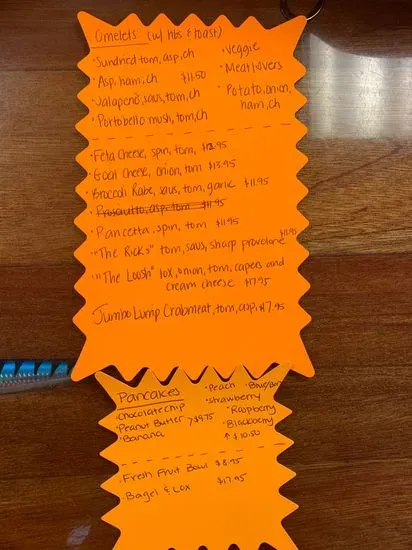 Omelets (w/ hbs & toast)
• Sundried tom, asp, ch
• Asp, ham, ch $11.50
• Jalapeño, saus, tom, ch
• Portobello mush, tom, ch
• Veggie
• Meatlovers
• Potato, onion,
ham, ch
• Feta Cheese, spin, tom, $12.95
• Goat Cheese, onion, tom $13.95
• Broccoli Rabe, saus, tom, garlic $11.95
• Prosciutto, asp, tom $11.95
• Pancetta, spin, tom $11.95
• "The Ricks" tom, saus, sharp provolone $11.95
• "The Loosh" lox, onion, tom, capers and
cream cheese $17.95
Jumbo Lump Crabmeat, tom, asp $17.95
Pancakes
chocolate chip
• Peanut Butter > $9.75
• Banana
• Peach
• strawberry
• Raspberry
• Blackberry
↑ $10.50
• Fresh Fruit Bowl $8.95
Bagel & Lox $17.95